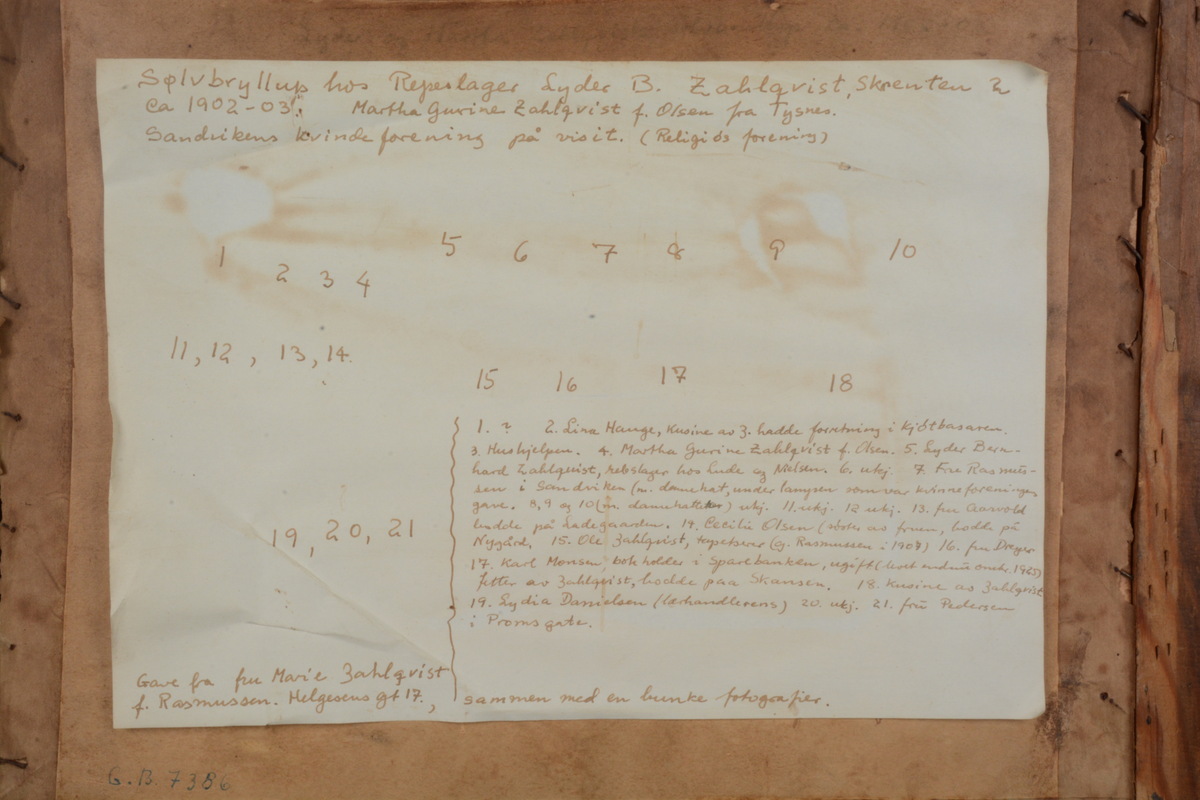 Sølvbryllup hos Repeslager Lyder B. Zahlqvist, Skrenten 2
ca 1902-03. Martha Gurine Zahlqvist f. Olsen fra Tysnes.
Sandvikens kvindeforening på visit. (Religiøs forening)
1 2 3 4 5 6 7 8 9 10
11, 12, 13, 14.
15 16 17 18
19, 20, 21
1. ? 2. Lina Hauge, kusine av Z. hadde forretning i Kjøtbasaren.
3. Hushjelpen. 4. Martha Gurine Zahlqvist f. Olsen. 5. Lyder Bern-
hard Zahlqvist, rebslager hos Lude og Nielsen. 6. ukj. 7. Fru Rasmus-
sen i Sandviken (m. damehat, under lampen som var kvinneforeningens
gave. 8, 9 og 10 (m. damehatter) ukj. 11. ukj. 12 ukj. 13. fru Aarvold
bodde på Ladegaarden. 14. Cecilie Olsen (søster av fruen, bodde på
Nygård. 15. Ole Zahlqvist, tapetserer (g. Rasmussen i 1907) 16. fru Dreyer
17. Karl Monsen, bokholder i Sparebanken, ugift (levet endnu omkr. 1925)
fetter av Zahlqvist, bodde paa Skansen. 18. Kusine av Zahlqvist
19. Lydia Danielsen (lærhandlerens) 20. ukj. 21. fru Pedersen
i Proms gate.
Gave fra fru Marie Zahlqvist
f. Rasmussen. Helgesens gt 17., sammen med en bunke fotografier.
G.B. 7386